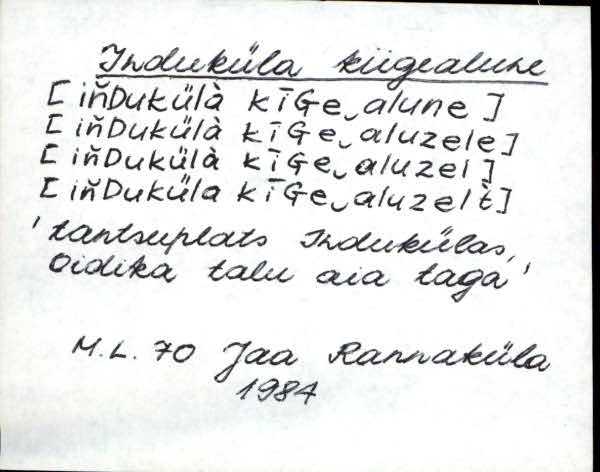 Induküla kiigealune
[iňDukülà kīGe‿alune]
[iňDukülà kīGe‿aluzele]
[iňDukülà kīGe‿aluzel]
[iňDuküla kīGe‿aluzelt̀]
'tantsuplats Indukülas,
Oidika talu aia taga'
M.L. 70 Jaa Rannaküla
1984